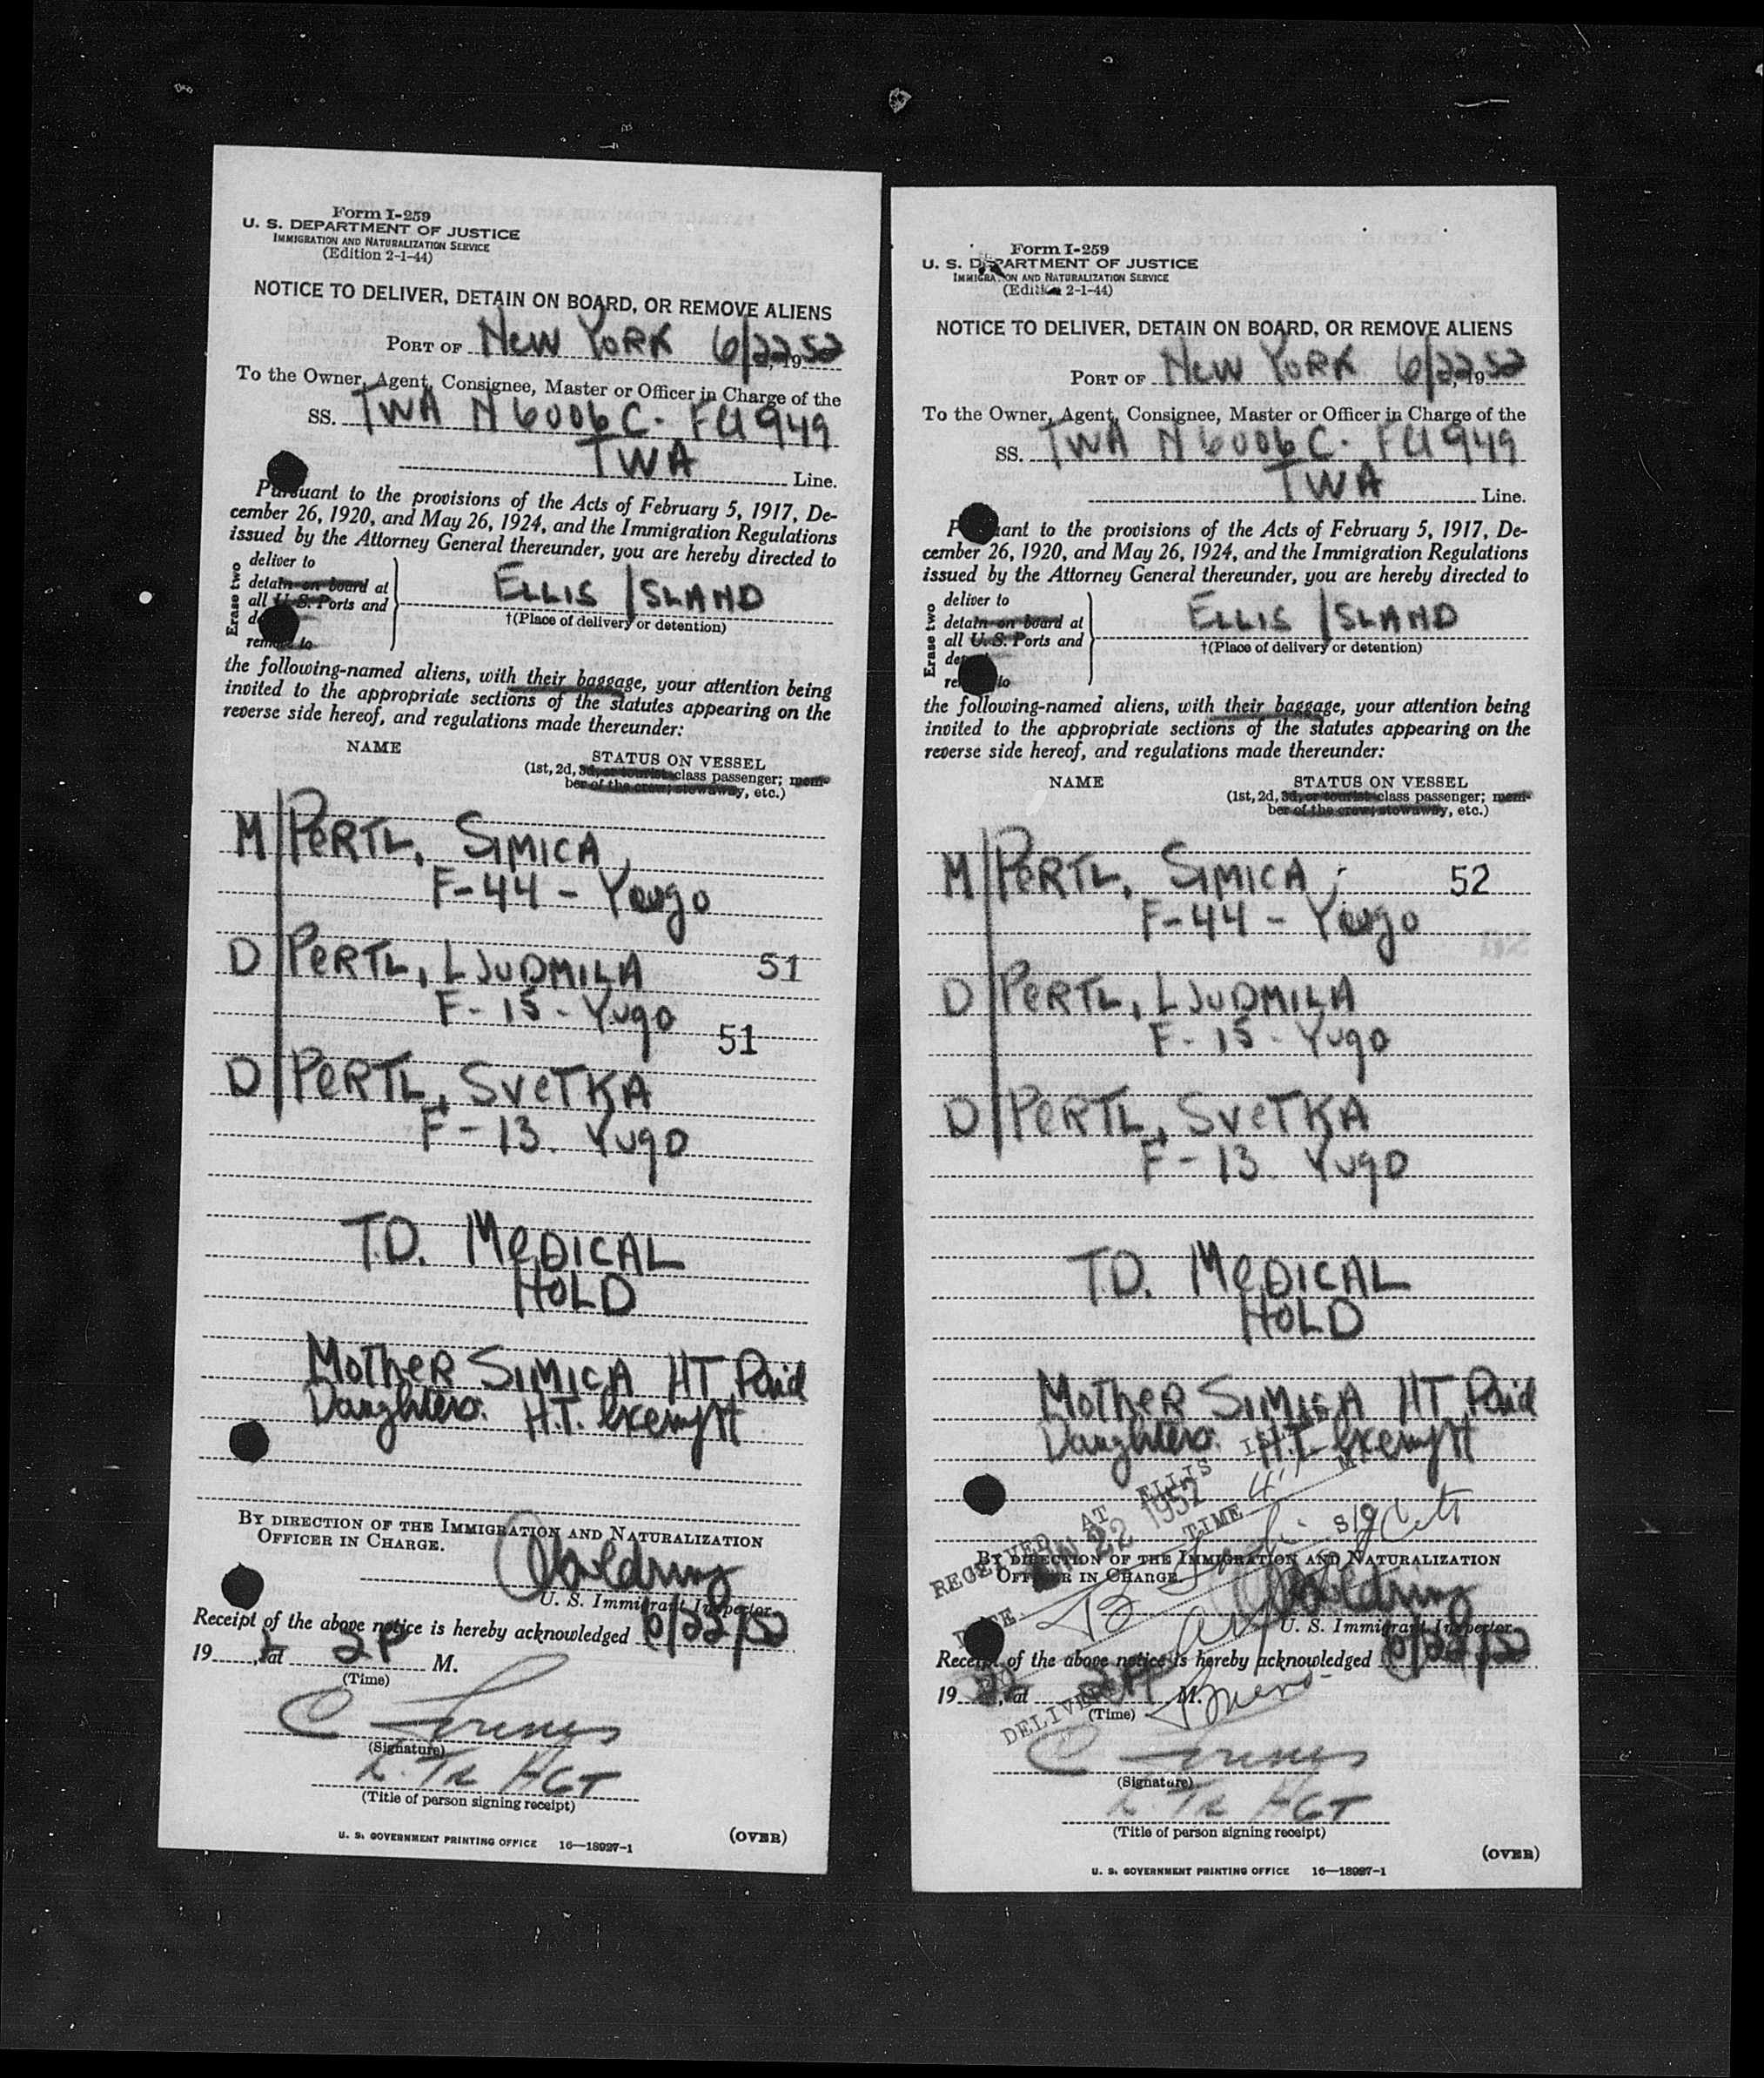 Form I-259
U. S. DEPARTMENT OF JUSTICE
IMMIGRATION AND NATURALIZATION SERVICE
(Edition 2-1-44)
NOTICE TO DELIVER, DETAIN ON BOARD, OR REMOVE ALIENS
PORT OF NEW YORK 6/22, 1952
To the Owner, Agent, Consignee, Master or Officer in Charge of the
SS. TWA N6006C. Flt 949
TWA Line.
Pursuant to the provisions of the Acts of February 5, 1917, De-
cember 26, 1920, and May 26, 1924, and the Immigration Regulations
issued by the Attorney General thereunder, you are hereby directed to
Erase two
deliver to
detain on board at
all U. S. Ports and
remove to
ELLIS ISLAND
†(Place of delivery or detention)
the following-named aliens, with their baggage, your attention being
invited to the appropriate sections of the statutes appearing on the
reverse side hereof, and regulations made thereunder:
NAME STATUS ON VESSEL
(1st, 2d, 3d, or tourist class passenger; mem-
ber of the crew; stowaway, etc.)
M PERTL, SIMICA,
F-44 - Yugo
D PERTL, LJUDMILA 51
F- 15 - Yugo
51
D PERTL, SVETKA
F - 13. Yugo
T.D. MEDICAL
HOLD
MOTHER SIMICA HT Paid
Daughters. H.T. exempt
BY DIRECTION OF THE IMMIGRATION AND NATURALIZATION
OFFICER IN CHARGE.
U. S. Immigrant Inspector.
Receipt of the above notice is hereby acknowledged 6/22/52
19 , at 2P M.
(Time)
(Signature)
(Title of person signing receipt)
U. S. GOVERNMENT PRINTING OFFICE 16—18927-1
(OVER)
Form I-259
U. S. DEPARTMENT OF JUSTICE
IMMIGRATION AND NATURALIZATION SERVICE
(Edition 2-1-44)
NOTICE TO DELIVER, DETAIN ON BOARD, OR REMOVE ALIENS
PORT OF NEW YORK 6/22, 1952
To the Owner, Agent, Consignee, Master or Officer in Charge of the
SS. TWA N6006C. Flt 949
TWA Line.
Pursuant to the provisions of the Acts of February 5, 1917, De-
cember 26, 1920, and May 26, 1924, and the Immigration Regulations
issued by the Attorney General thereunder, you are hereby directed to
Erase two
deliver to
detain on board at
all U. S. Ports and
ELLIS ISLAND
†(Place of delivery or detention)
the following-named aliens, with their baggage, your attention being
invited to the appropriate sections of the statutes appearing on the
reverse side hereof, and regulations made thereunder:
NAME STATUS ON VESSEL
(1st, 2d, 3d, or tourist class passenger; mem-
ber of the crew; stowaway, etc.)
M PERTL, SIMICA, 52
F-44 - Yugo
D PERTL, LJUDMILA
F- 15 - Yugo
D PERTL, SVETKA
F - 13. Yugo
T.D. MEDICAL
HOLD
MOTHER SIMICA HT Paid
Daughters. H.T. exempt
RECEIVED AT ELLIS
22 1952 TIME
BY DIRECTION OF THE IMMIGRATION AND NATURALIZATION
OFFICER IN CHARGE.
U. S. Immigrant Inspector.
Receipt of the above notice is hereby acknowledged 6/22/52
19 , at 2P M.
(Time)
(Signature)
(Title of person signing receipt)
U. S. GOVERNMENT PRINTING OFFICE 16—18927-1
(OVER)